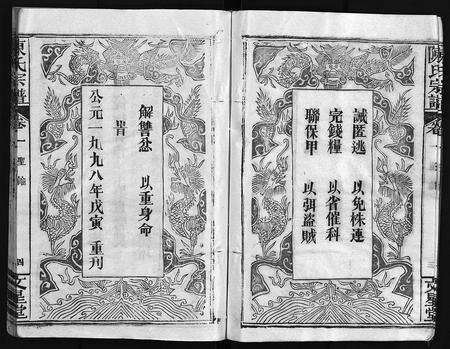 陳氏宗譜
誡匿逃 以免株連
完錢糧 以省催科
聯保甲 以弭盜賊
解讐忿 以重身命
公元一九九八年戊寅 重刊
陳氏宗譜 卷一 聖諭 四 文星堂